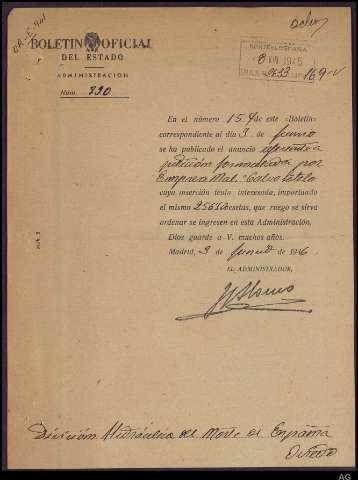 BOLETIN OFICIAL
DEL ESTADO
ADMINISTRACIÓN
Núm. 890
1945
En el número 154 de este «Boletín»
correspondiente al día 3 de Junio
se ha publicado el anuncio referente a
petición formulada por
Empresa Nal. "Calvo Sotelo
cuya inserción tenía interesada, importando
el mismo pesetas, que ruego se sirva
ordenar se ingresen en esta Administración.
Dios guarde a V. muchos años.
Madrid, 3 de Junio de 1946
EL ADMINISTRADOR,
División Hidráulica del Norte de España
Oviedo
AG